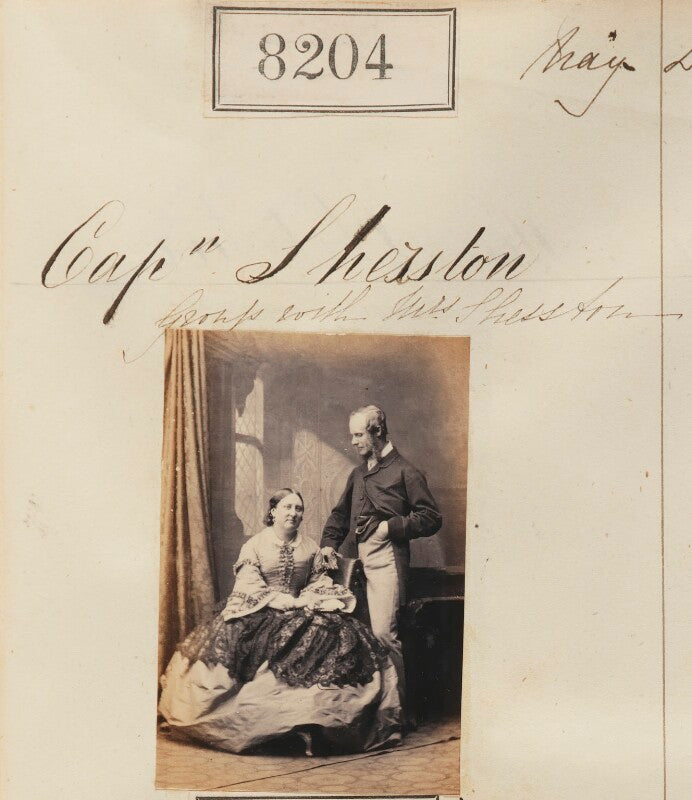 8204
May 2
Cap" Sherston
Group with Mrs Sherston